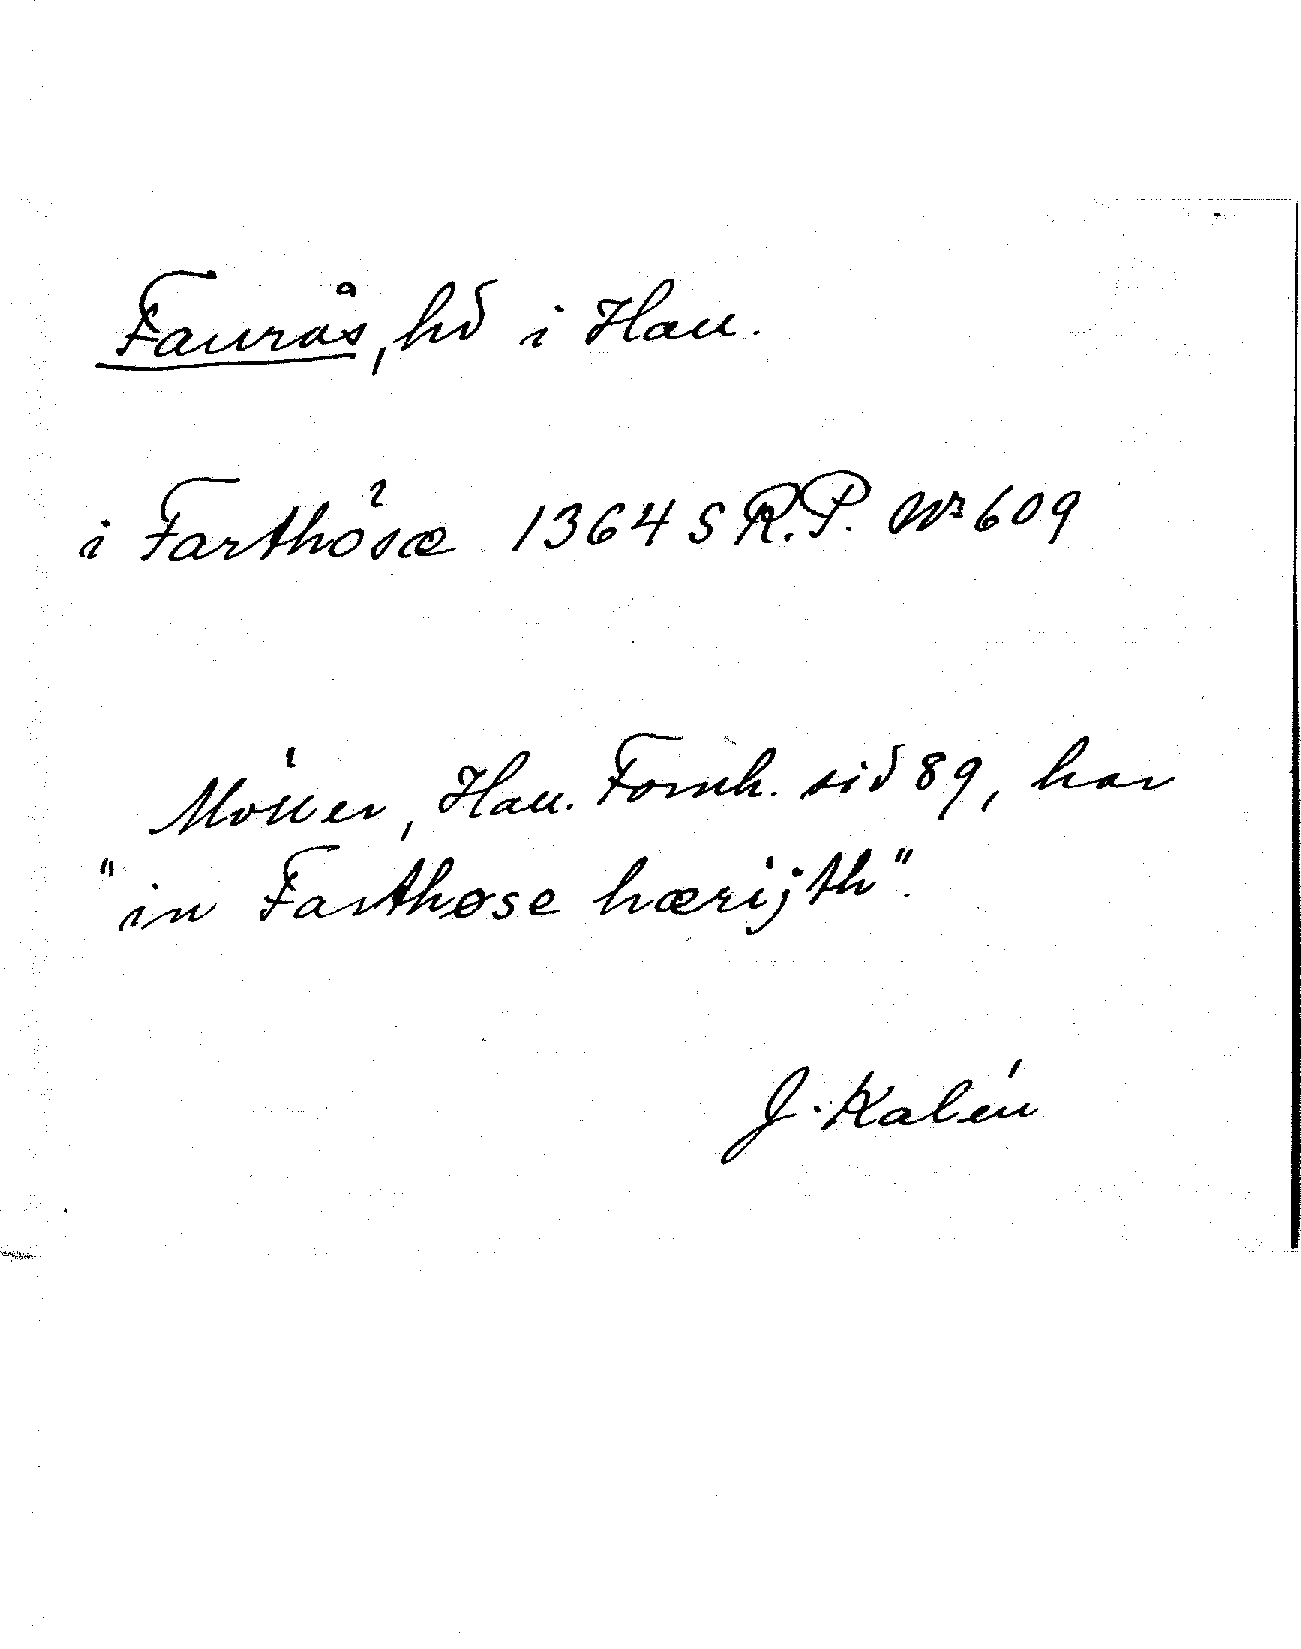 Faurås, hd i Hall.
i Farthösæ 1364 S R.P. Nr 609
Möller, Hall. Fornh. sid 89, har
"in Farthøse hærijth".
J. Kalén